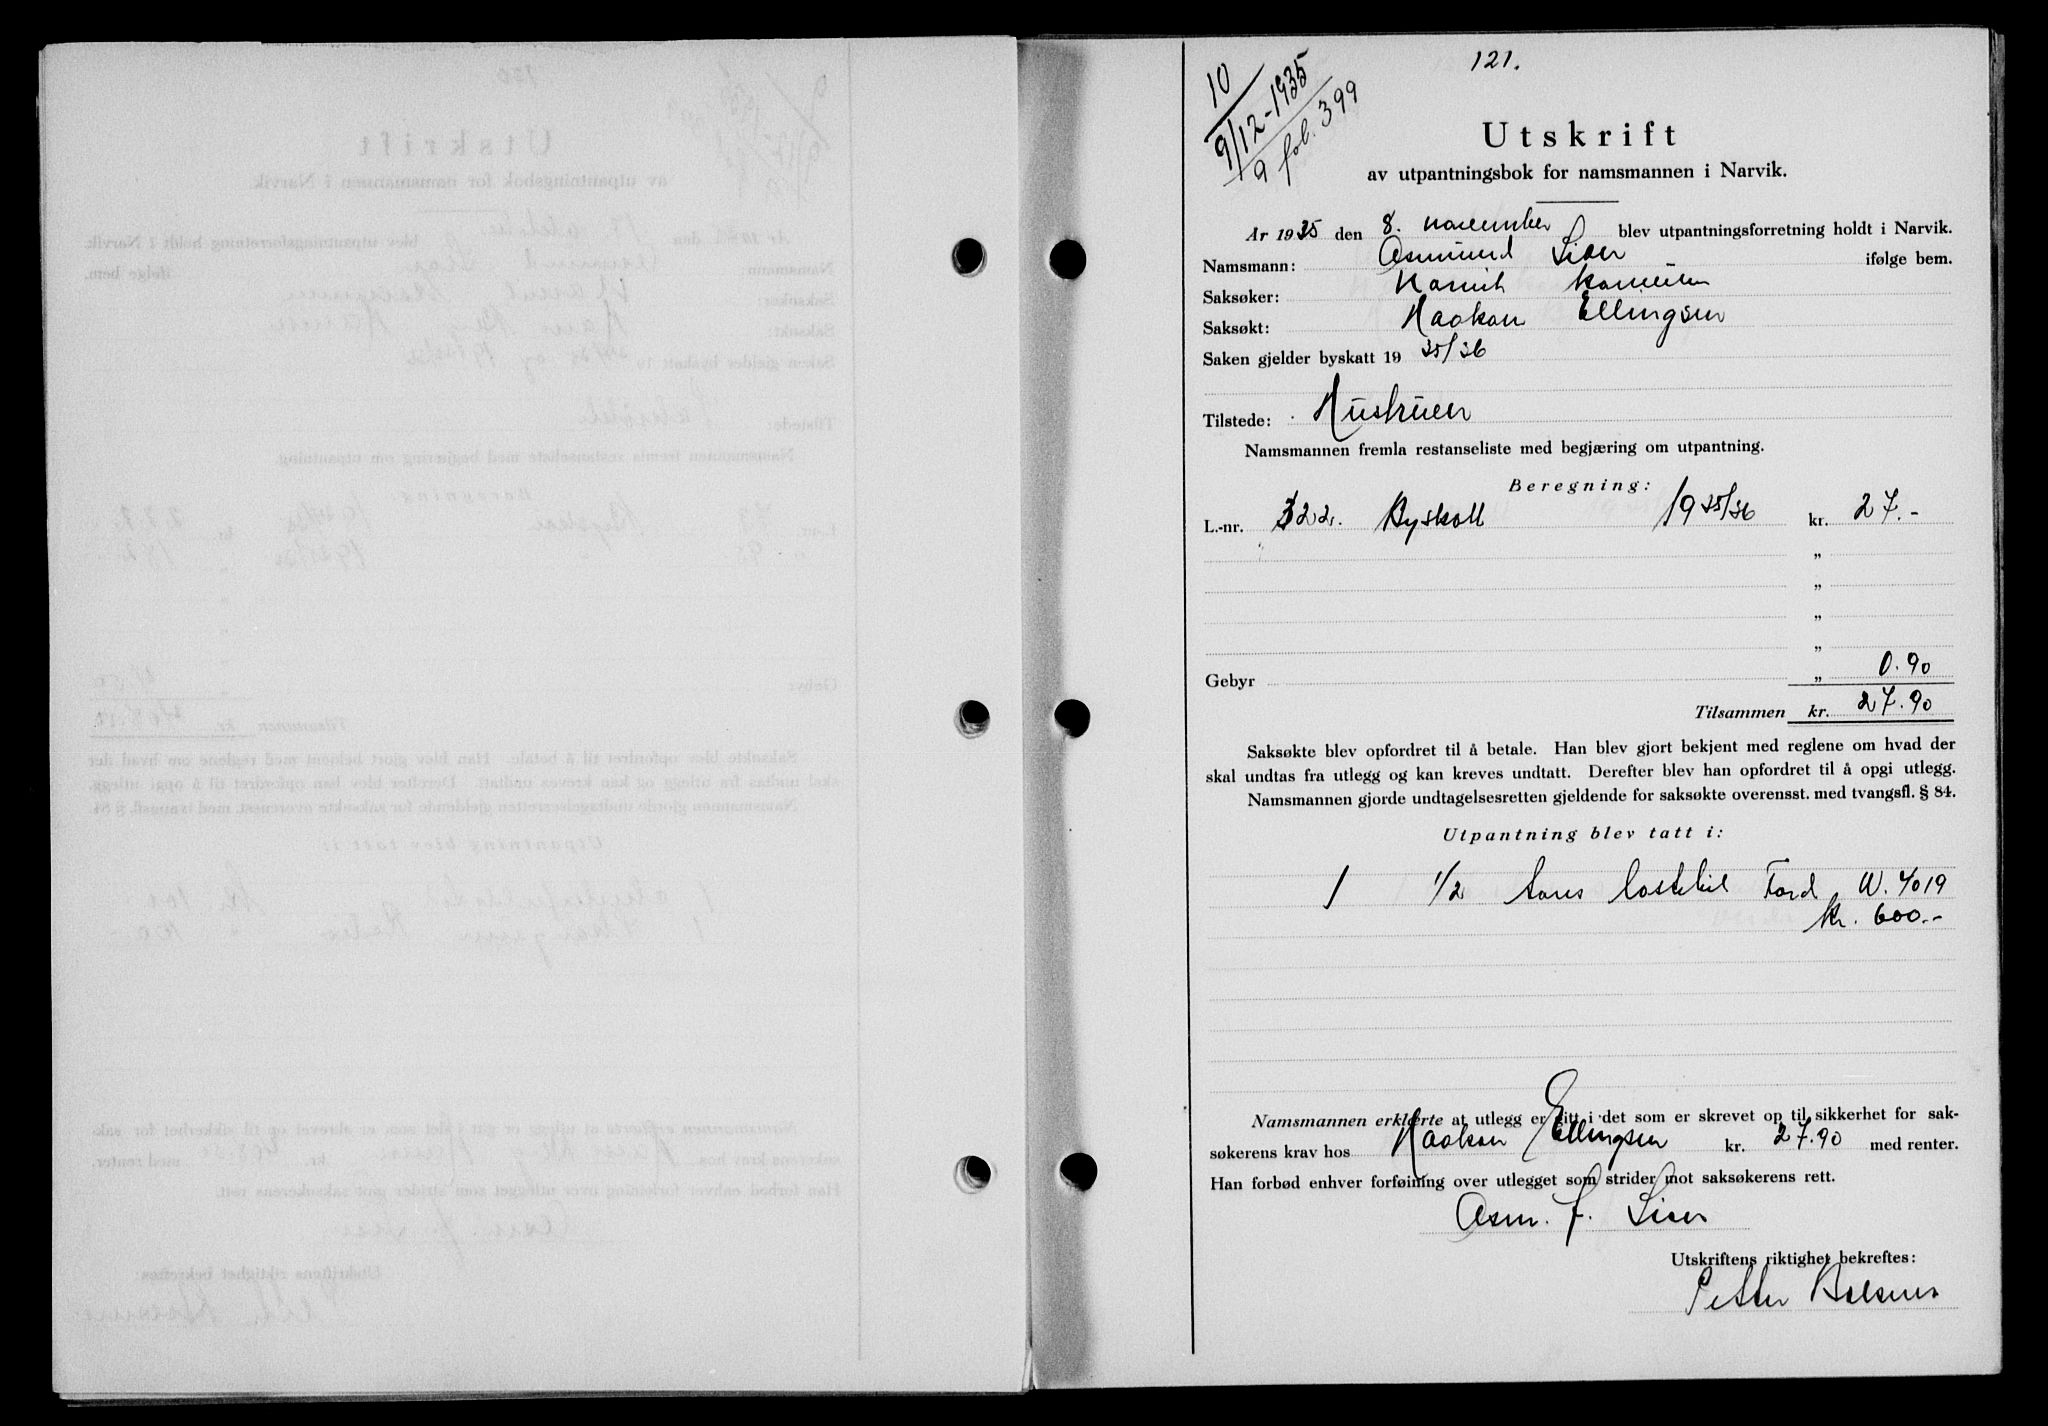 121.
10
9/12-1935
9 fol. 399
Utskrift
av utpantningsbok for namsmannen i Narvik.
År 1935 den 8. november blev utpantningsforretning holdt i Narvik.
Namsmann: Asmund ifølge bem.
Saksøker: Narvik
Saksøkt: Haakon Ellingsen
Saken gjelder byskatt 19 35/36
Tilstede: Hustruen
Namsmannen fremla restanseliste med begjæring om utpantning.
Beregning:
L.-nr. 322. Byskatt 1935/36 kr. 27.-
"
"
"
"
Gebyr " 0.90
Tilsammen kr. 27.90
Saksøkte blev opfordret til å betale. Han blev gjort bekjent med reglene om hvad der
skal undtas fra utlegg og kan kreves undtatt. Derefter blev han opfordret til å opgi utlegg.
Namsmannen gjorde undtagelsesretten gjeldende for saksøkte overensst. med tvangsfl. § 84.
Utpantning blev tatt i:
1 1/2 tons lastebil Ford W. 4019
kr. 600.-
Namsmannen erklærte at utlegg er gitt i det som er skrevet op til sikkerhet for sak-
søkerens krav hos Haakon Ellingsen kr. 27.90 med renter.
Han forbød enhver forføining over utlegget som strider mot saksøkerens rett.
Asm. J.
Utskriftens riktighet bekreftes:
Petter